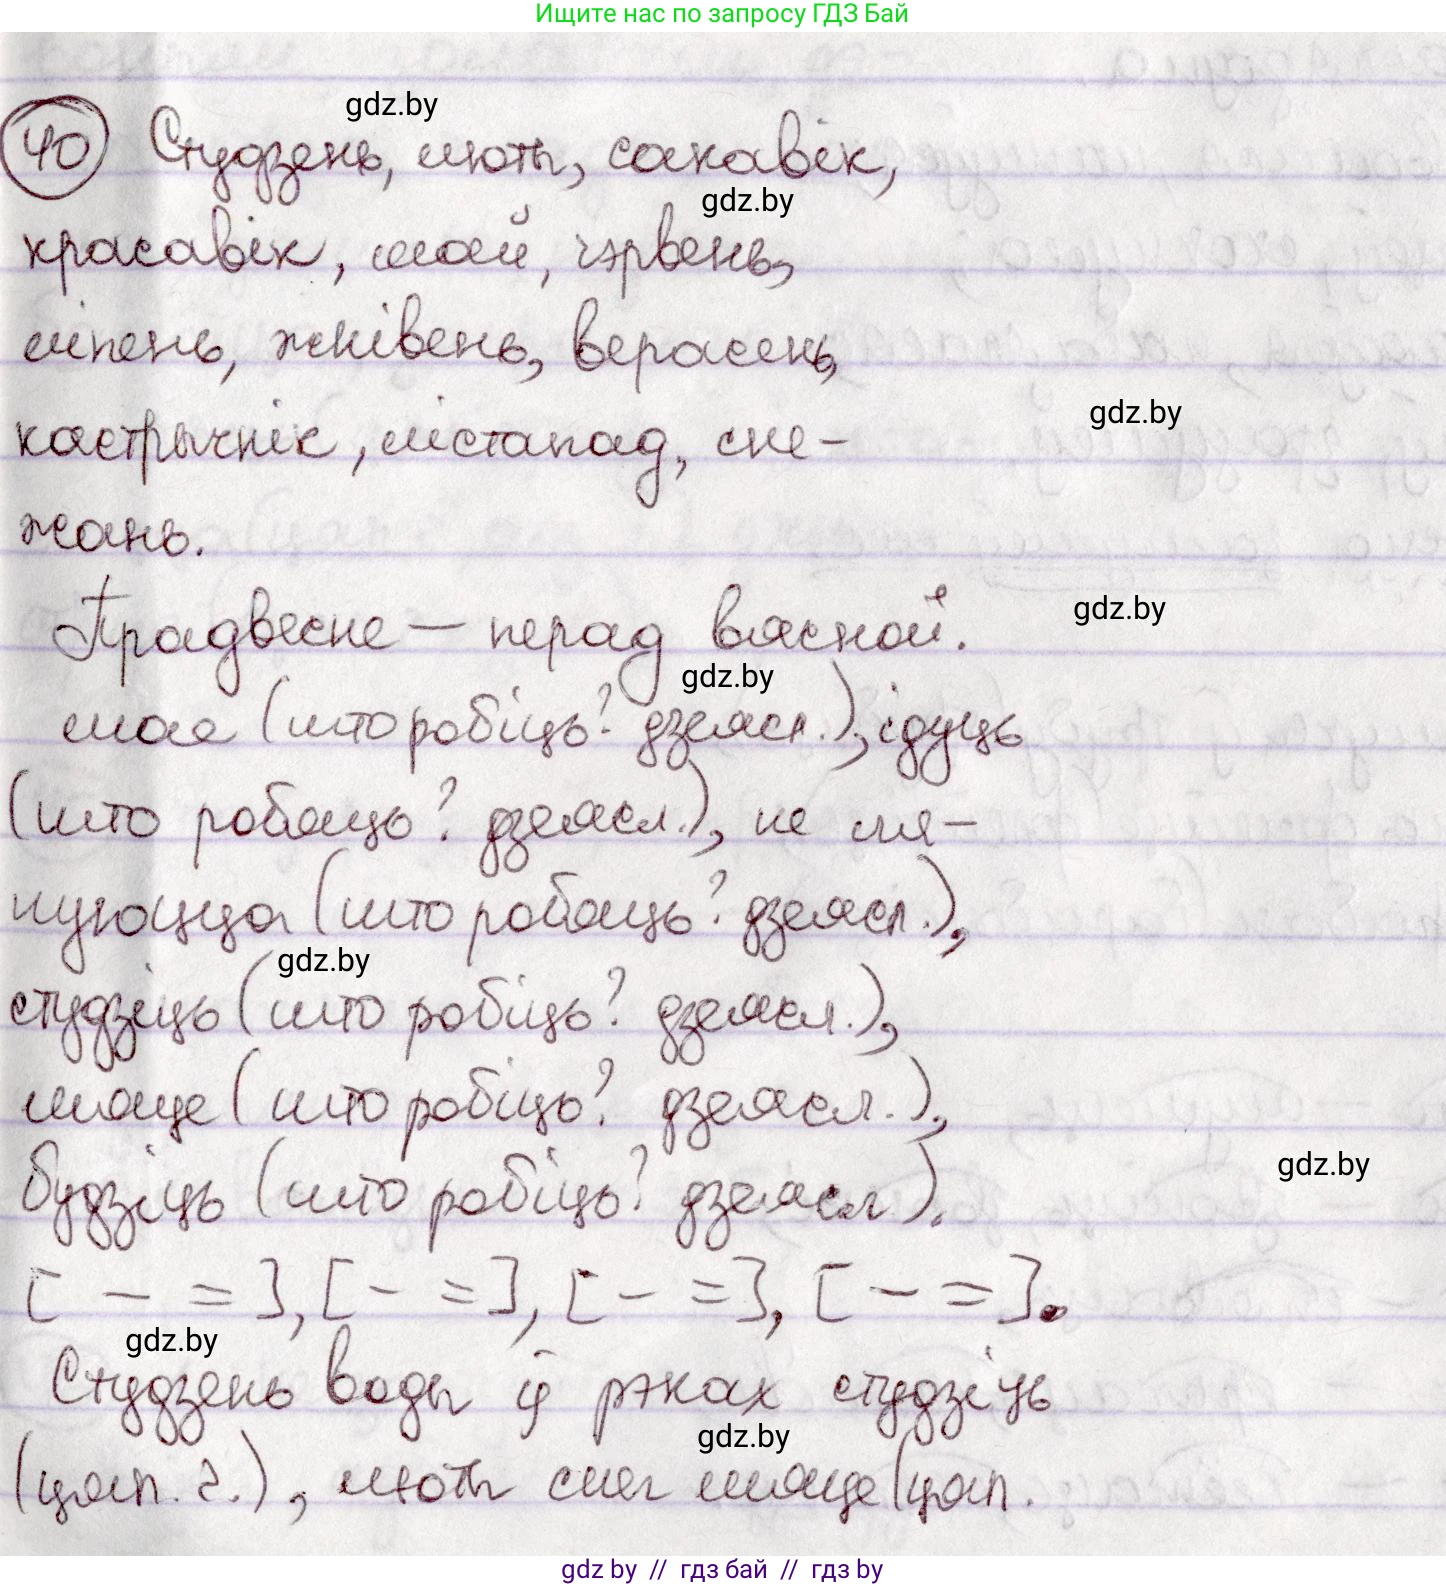 Ищите нас по запросу ГДЗ Бай
gdz.by
40 Студзень, люты, сакавік,
gdz.by
красавік, май, чэрвень,
ліпень, жнівень, верасень,
кастрычнік, лістапад, сне-
gdz.by
жань.
Прадвесне – перад вясной.
gdz.by
gdz.by
мае (што робіць? дзеясл.), ідуць
(што робяць? дзеясл.), не мя-
нуюцца (што робяць? дзеясл.),
gdz.by
студзіць (што робіць? дзеясл.),
мяце (што робіць? дзеясл.),
будзіць (што робіць? дзеясл.).
gdz.by
[ – = ], [ – = ], [ – = ], [ – = ].
gdz.by
Студзень воды ў рэках студзіць
gdz.by
(цяп. ч.), люты снег мяце (цяп.
gdz by // гдз бай // гдз by